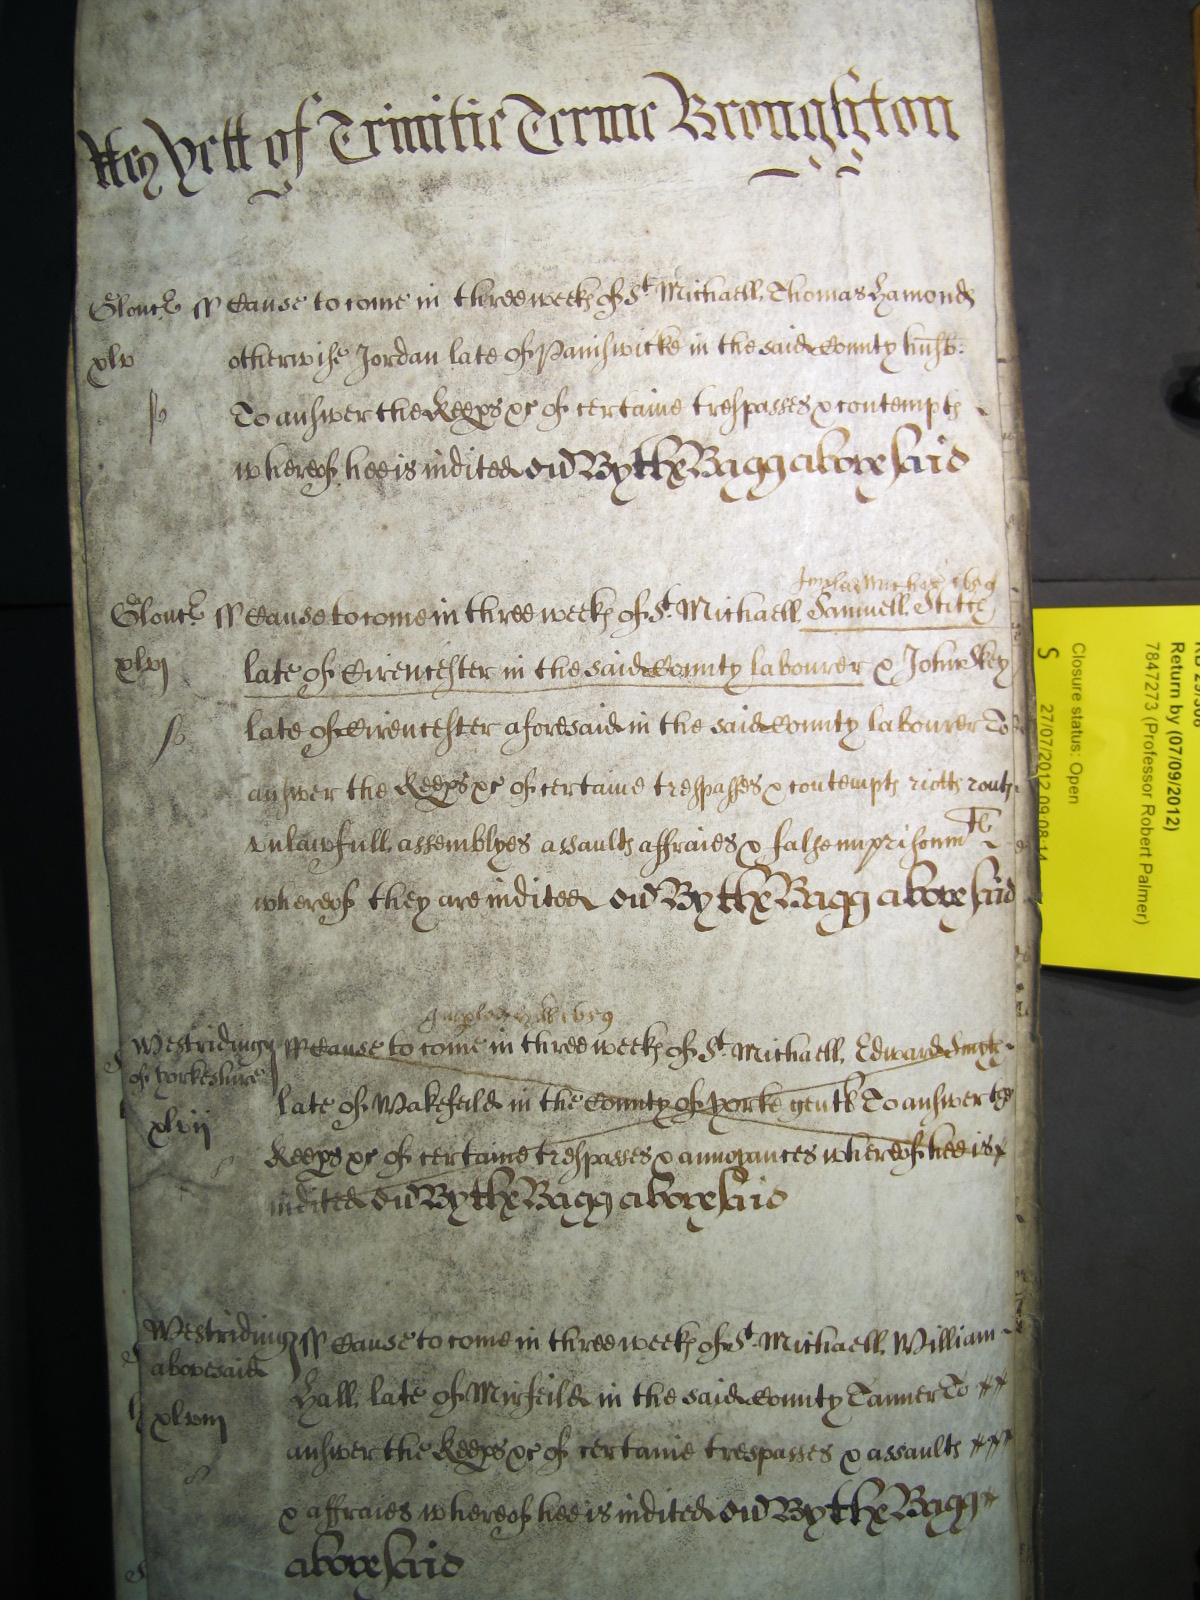 Yett of Trinitie Terme Broughton
Glouc ss Cause to come in three weeks of St Michaell, Thomas Hamonds
xlv otherwise Jordan late of Painswicke in the said County husb:
To answer the Keeps &c of certaine trespasses & contempts
whereof hee is indited By the Bagg abovesaid
Glouc ss Cause to come in three weeks of St Michaell, Samuell Stitte
xlvj late of Cirencester in the said County labourer & John Key
late of Cirencester aforesaid in the said County labourer To
answer the Keeps &c of certaine trespasses & contempts riotts routs
unlawfull assemblyes assaults affraies & false imprisonmte
whereof they are indited By the Bagg abovesaid
Westriding ss Cause to come in three weeks of St Michaell, Edward
of Yorkeshire
late of Wakefeild in the County of Yorke gentl To answer the
xlvij
Keeps &c of certaine trespasses & annoyances whereof hee is
indited By the Bagg abovesaid
Westriding ss Cause to come in three weeks of St Michaell, William
abovesaid
Hall, late of Mirfeild in the said County Tanner To
xlviij
answer the Keeps &c of certaine trespasses & assaults
& affraies whereof hee is indited By the Bagg
abovesaid
Return by (07/09/2012)
7847273 (Professor Robert Palmer)
Closure status: Open
S 27/07/2012 09:08:14